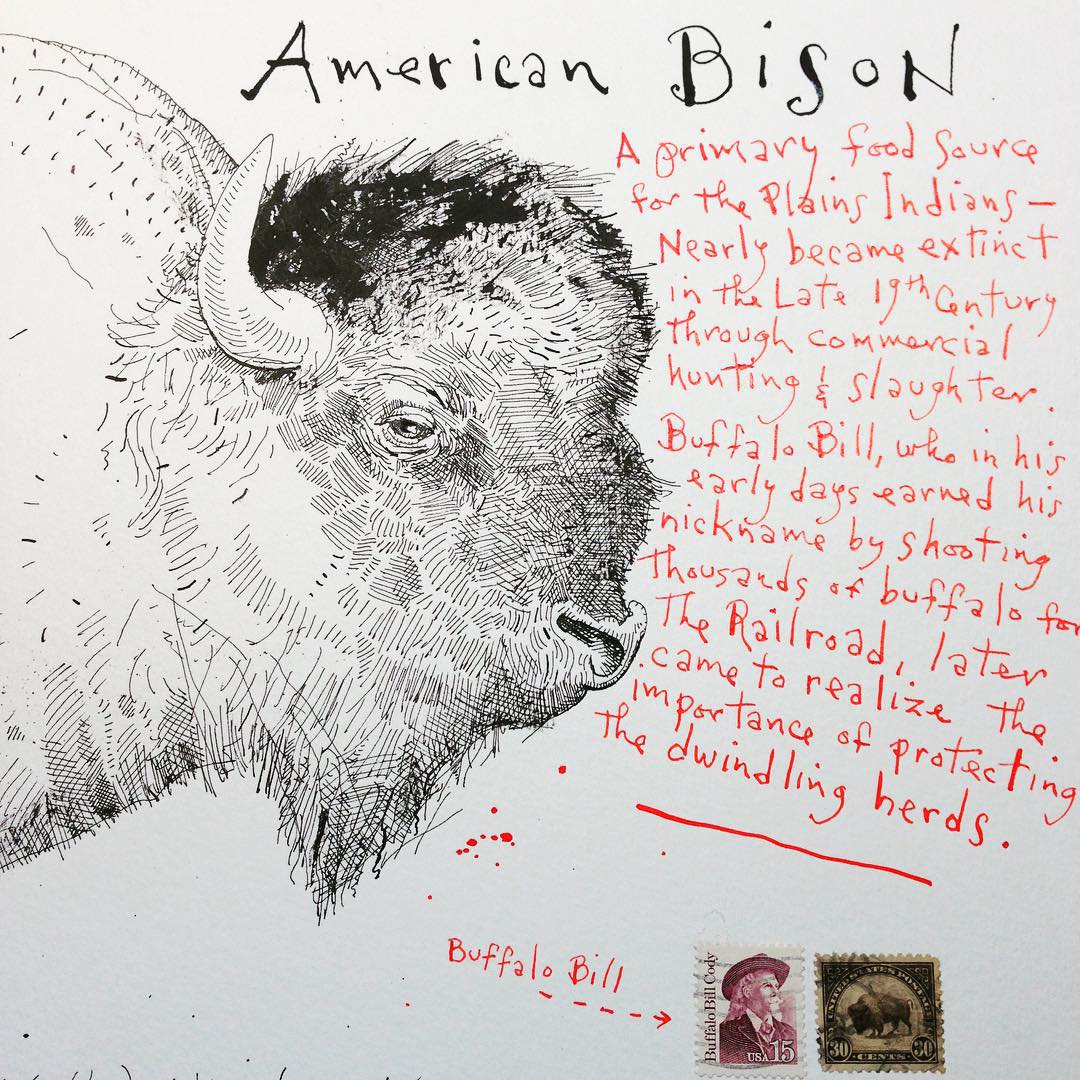 American Bison
A primary food source
for the Plains Indians —
Nearly became extinct
in the Late 19th Century
through commercial
hunting & slaughter.
Buffalo Bill, who in his
early days earned his
nickname by shooting
thousands of buffalo for
The Railroad, later
came to realize the
importance of protecting
the dwindling herds.
Buffalo Bill
Buffalo Bill Cody
USA 15
UNITED STATES POSTAGE
30 CENTS 30